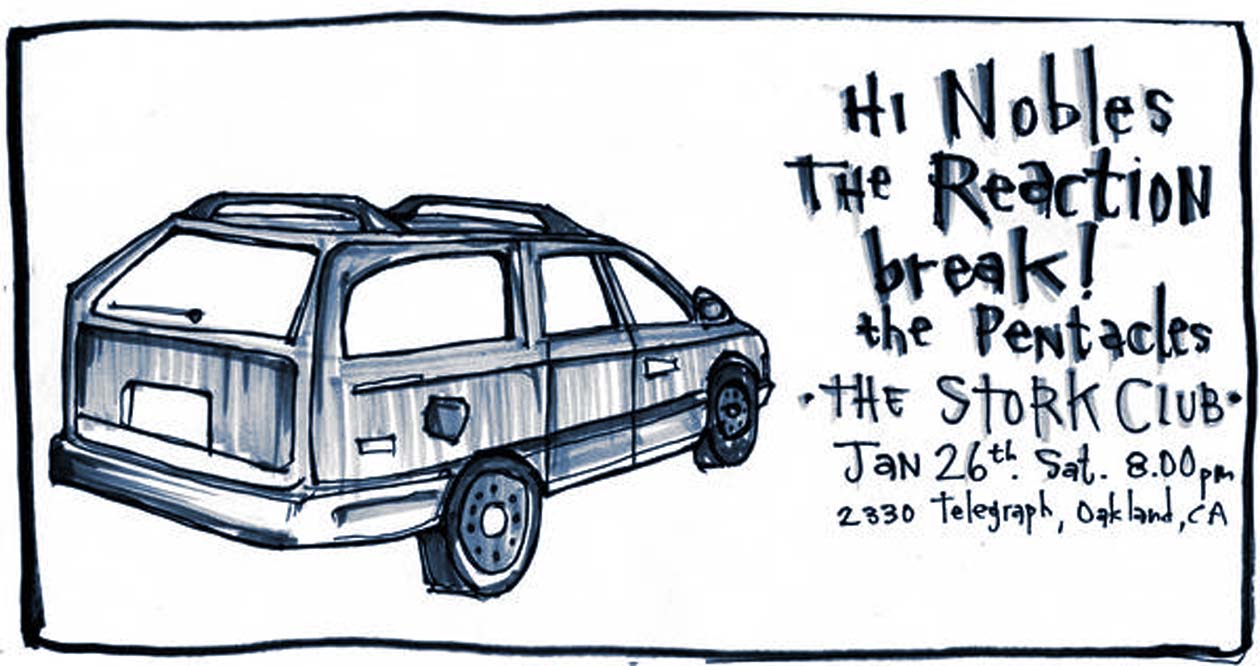 Hi Nobles
The Reaction
break!
the Pentacles
·THE STORK CLUB·
Jan 26th. Sat. 8.00pm
2330 Telegraph, Oakland, CA